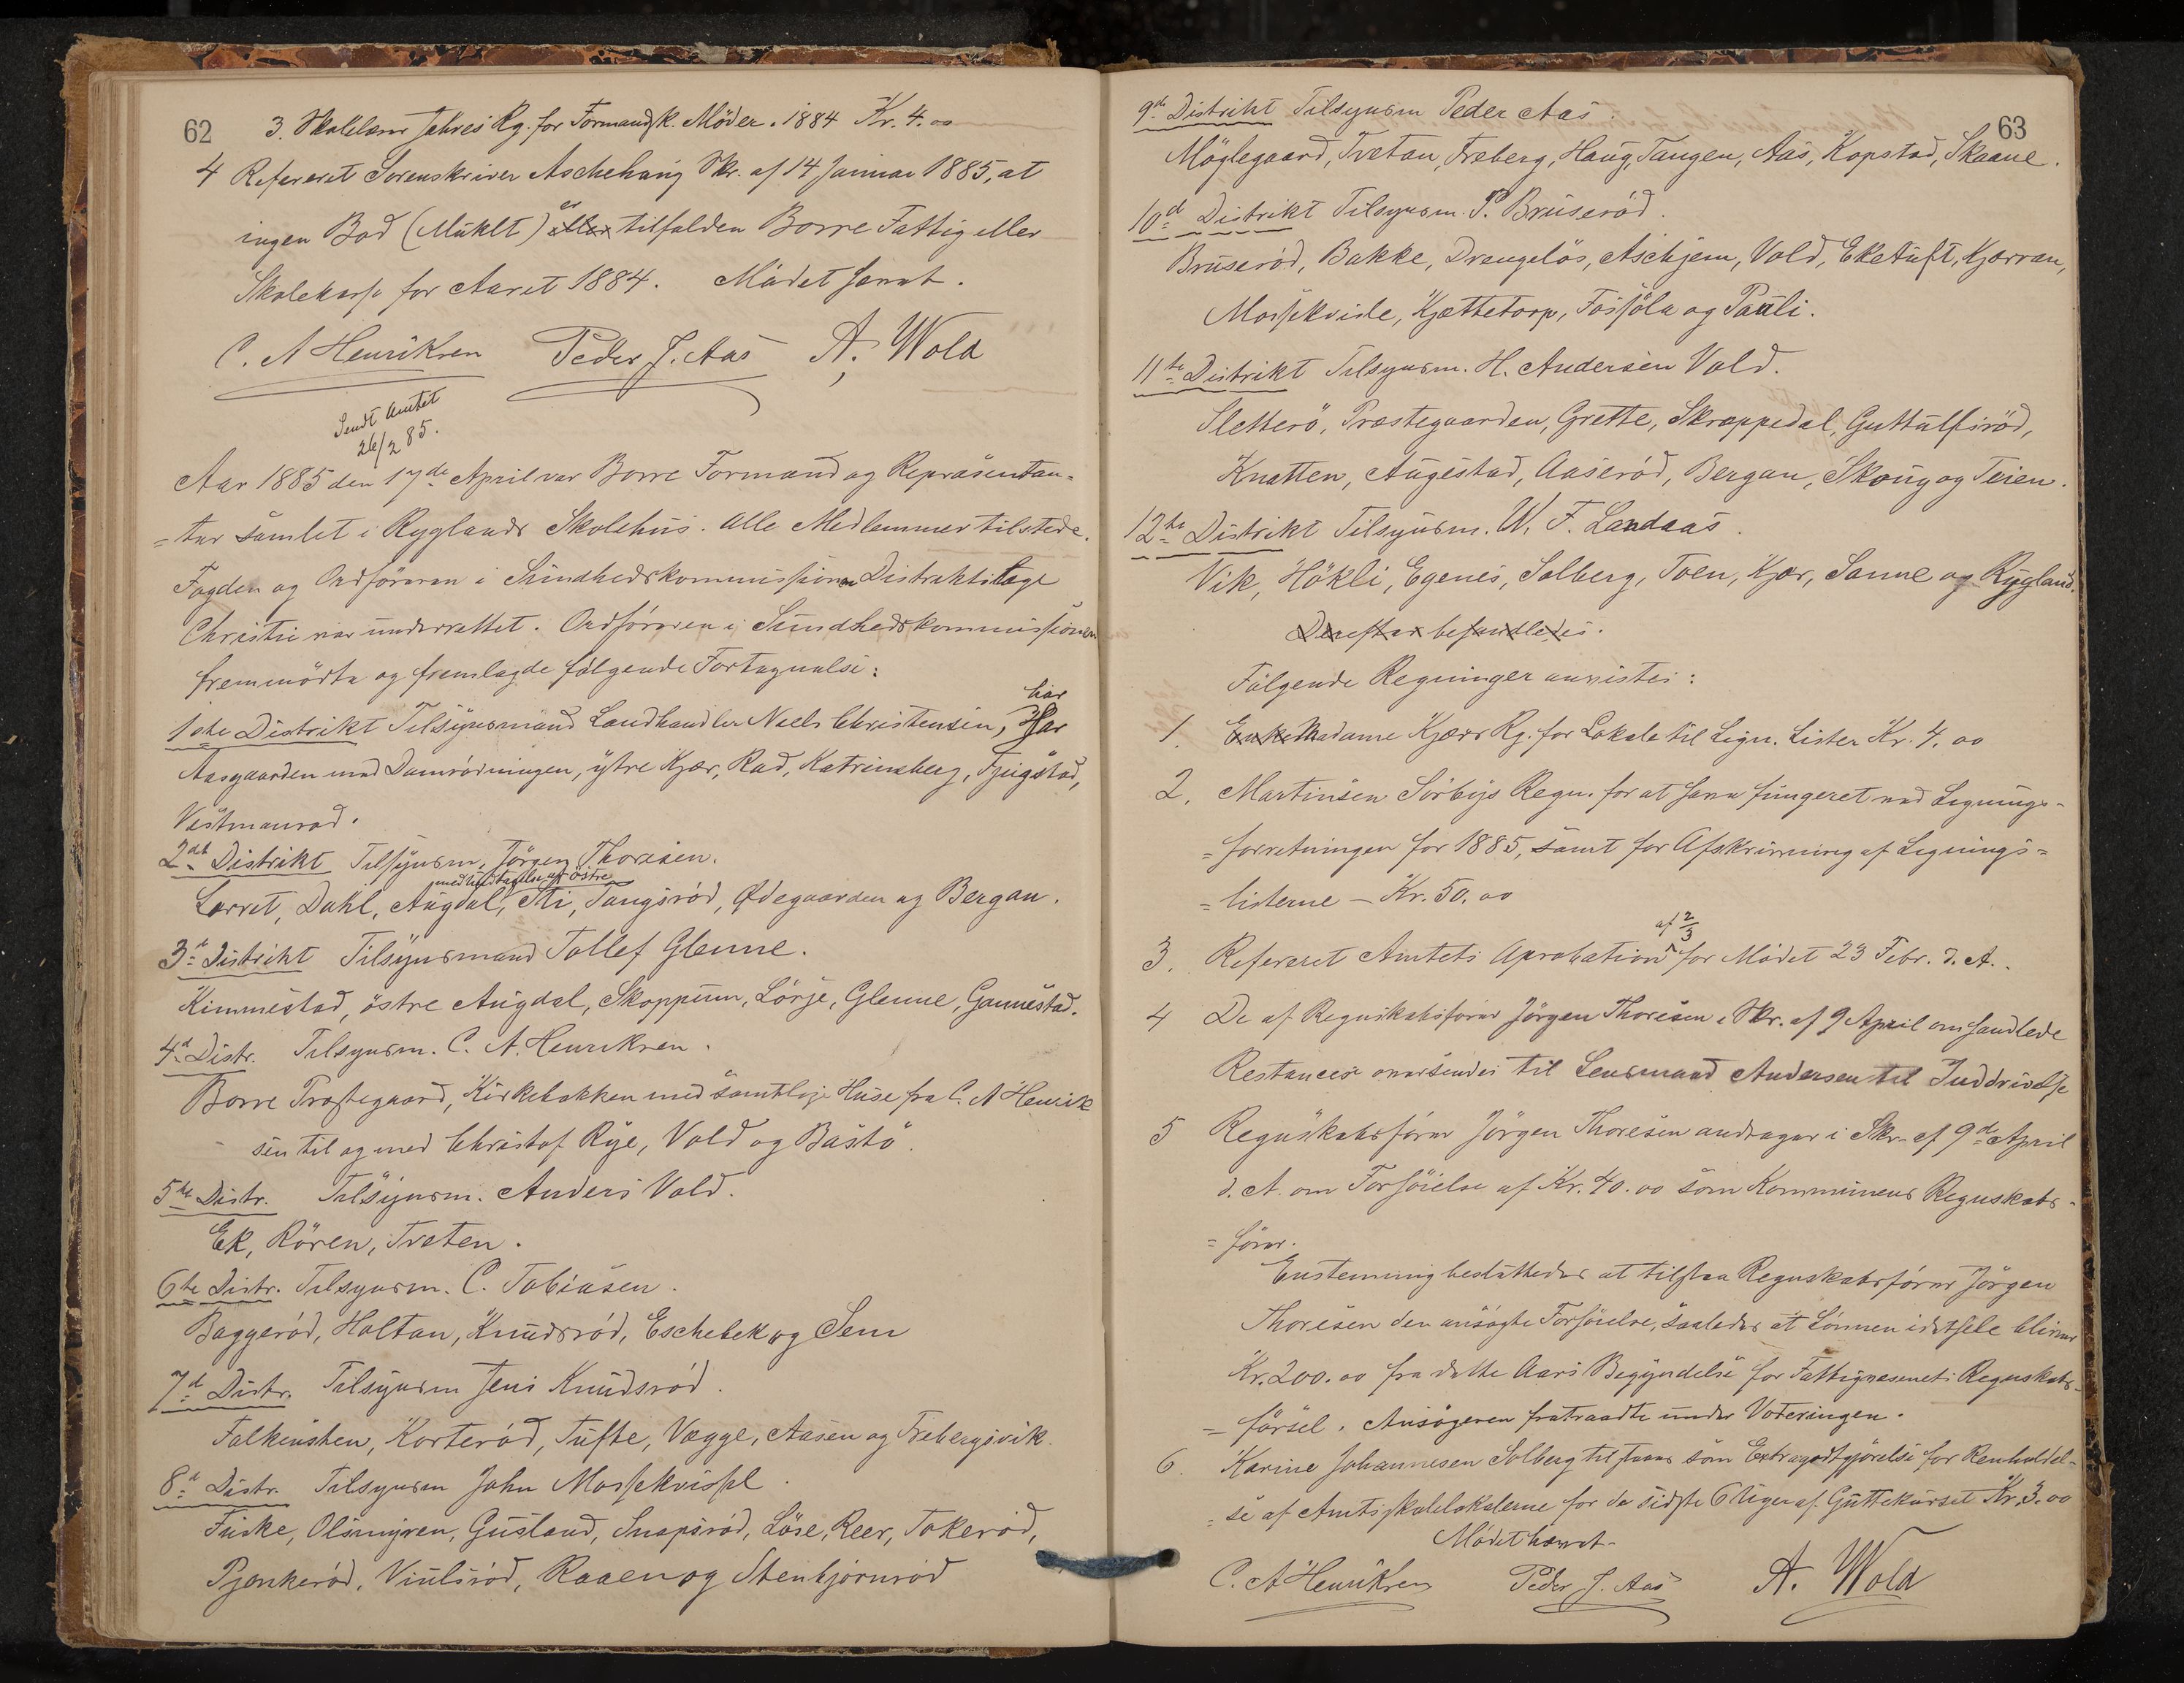 62
3. Skolelærer Jahres Rg. for Formandsk. Möder. 1884 Kr. 4.00
4 Refereret Sorenskriver Aschehoug Skr. af 14 Januar 1885, at
ingen Bod (Mulkt) er eller tilfalden Borre Fattig eller
Skolekasse for Aaret 1884. Mödet hævet.
C. A Henriksen Peder J. Aas A. Wold
Sendt Amtet
26/2 85.
Aar 1885 den 17de April var Borre Formand og Repräsentan=
=ter samlet i Ryglands Skolehus. Alle Medlemmer tilstede.
Fogden og Ordföreren i Sundhedskommissionen Distriktslæge
Christie var underrettet. Ordföreren i Sundhedskommissionen
fremmödte og fremlagde fölgende Fortegnelse:
1ste Distrikt Tilsynsmand Landhandler Niels Christensen, Har har
Aasgaarden med Damrödningen, ytre Kjær, Rad, Katrineberg, Fyugstad,
Vestmanrød.
2det Distrikt Tilsynsm. Jörgen Thoresen.
med Undtagelse af östre
Lorvet, Dahl, Augdal, Sti, Tangsröd, Ødegaarden og Bergan.
3d Distrikt Tilsynsmand Tollef Glenne.
Kimmestad, östre Augdal, Skoppum, Lörje, Glenne, Gannestad.
4d Distr. Tilsynsm. C. A. Henriksen.
Borre Præstegaard, Kirkebakken med samtlige Huse fra C. A Henrik
sen til og med Christof Rye, Vold og Bastö.
5te Distr. Tilsynsm. Anders Vold.
Ek, Rören, Tveten.
6te Distr. Tilsynsm. C. Tobiasen.
Baggeröd, Holtan, Knudsröd, Eschebek og Sem
7d Distr. Tilsynsm Jens Knudsröd.
Falkensten, Korteröd, Tufte, Vegge, Aasen og Frebergsvik.
8d Distr. Tilsynsm John Massekvissl.
Fuske, Olsmyren, Gusland, Snapsröd, Löse, Reer, Tokeröd,
Pjonkeröd, Viulsröd, Raaen og Stenbjörnröd
63
9d Distrikt Tilsynsm Peder Aas.
Möglegaard, Tvetan, Freberg, Haug, Tangen, Aas, Kopstad, Skaane.
10d Distrikt Tilsynsm. P. Bruseröd.
Bruseröd, Bakke, Drengelös, Aschjem, Vold, Eketuft, Kjærran,
Massekvisle, Kjættetorp, Fossöla og Pauli.
11te Distrikt Tilsynsm. H. Andersen Vold.
Sletterö, Præstegaarden, Grette, Skreppedal, Guttulfsröd,
Knatten, Augestad, Aaseröd, Bergan, Skoug og Teien.
12te Distrikt Tilsynsm. W. F. Landaas.
Vik, Hökli, Egenes, Solberg, Toen, Kjær, Sanne og Rygland.
Derefter behandledes.
Fölgende Regninger anvistes:
1. Enke Madame Kjærs Rg. for Lokale til Lign. Lister Kr. 4.00
2. Martinsen Sörbys Regn. for at have fungeret ved Lignings-
=forretningen for 1885, samt for Afskrivning af Lignings=
=listerne – Kr. 50.00
3. Refereret Amtets Aprobation af 2/3 for Mödet 23 Febr. d. A.
4 De af Regnskabsförer Jörgen Thoresen i Skr. af 9 April omhandlede
Restancer oversendes til Lensmand Andersen til Inddrivelse
5 Regnskabsförer Jörgen Thoresen andrager i Skr. af 9de April
d. A. om Forhöielse af Kr. 40.00 som Kommunens Regnskabs-
=förer.
Enstemmig besluttedes at tilstaa Regnskabsförer Jörgen
Thoresen den ansögte Forhöielse, saaledes at Lönnen idethele bliver
Kr. 200.00 fra dette Aars Begyndelse for Fattigvæsenets Regnskabs-
=försel. Ansögeren fratraadte under Voteringen.
6. Karine Johannesen Solberg tilstaaes som Extragodtgjörelse for Renholdel-
=se af Amtsskolelokalerne for de sidste 6 Uger af Guttekurset Kr. 3.00
Mödet hævet.
C. A Henriksen Peder J. Aas A. Wold